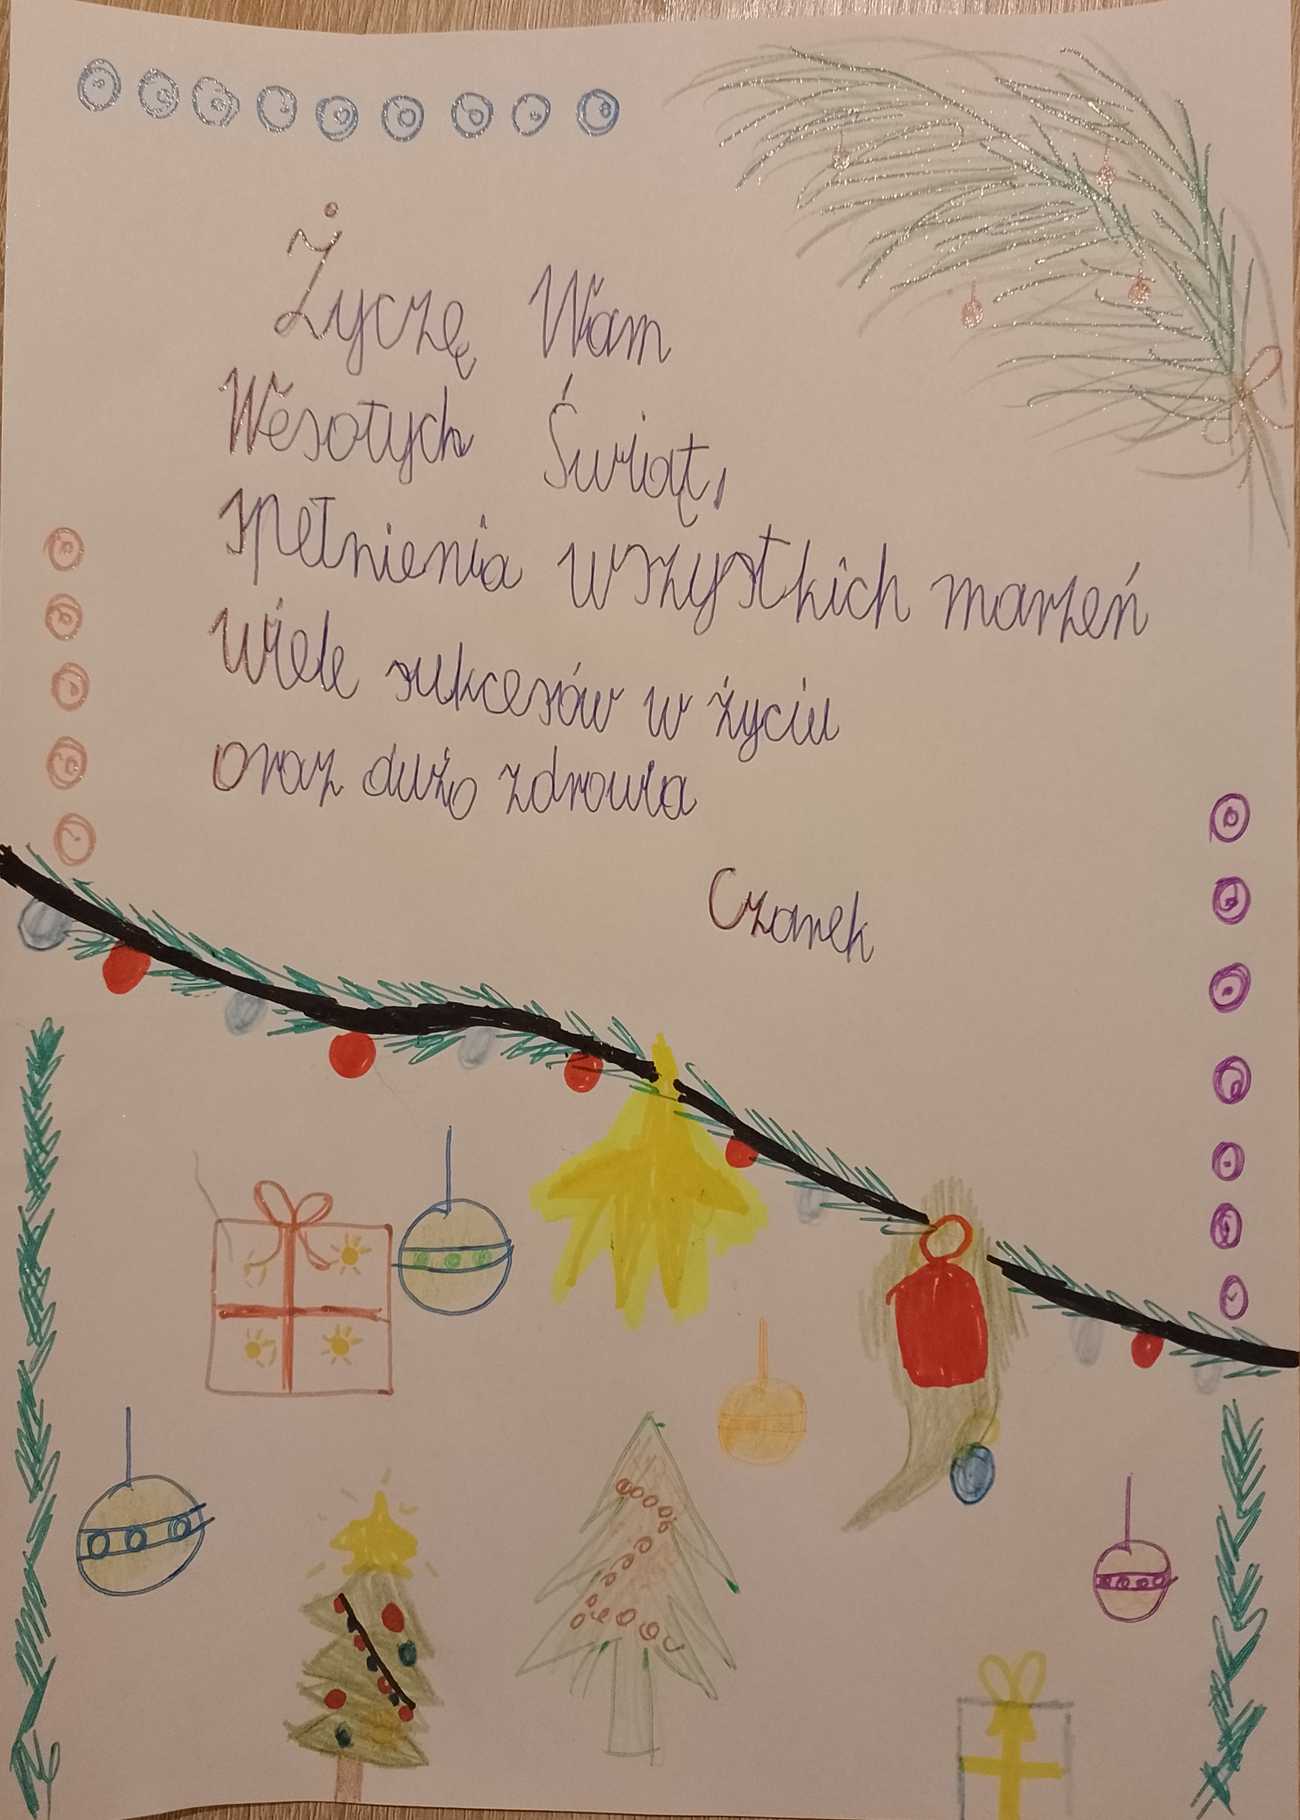 Życzę Wam
Wesołych Świąt,
spełnienia wszystkich marzeń
wiele sukcesów w życiu
oraz dużo zdrowia
Czarek